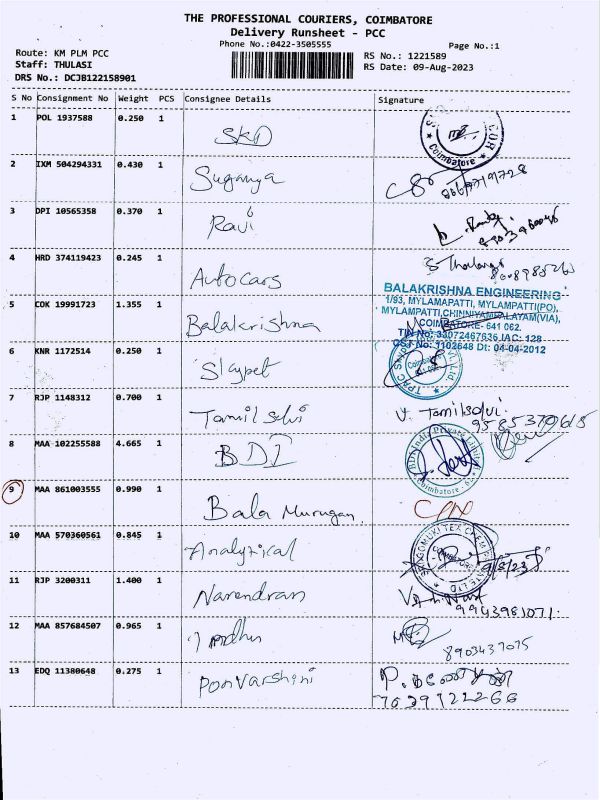 THE PROFESSIONAL COURIERS, COIMBATORE
Delivery Runsheet - PCC
Phone No.:0422-3505555
Page No.:1
Route: KM PLM PCC
Staff: THULASI
DRS No.: DCJB122158901
RS No.: 1221589
RS Date: 09-Aug-2023
S No Consignment No Weight PCS Consignee Details Signature
1 POL 1937588 0.250 1
SKD
Coimbatore
2 IXM 504294331 0.430 1
Suganya
3 DPI 10565358 0.370 1
Ravi
4 HRD 374119423 0.245 1
Autocars
5 COK 19991723 1.355 1
Balakrishna
BALAKRISHNA ENGINEERING
1/93, MYLAMAPATTI, MYLAMPATTI(PO),
MYLAMPATTI,CHINNIYAMPALAYAM(VIA),
COIMBATORE- 641 062.
TIN No: 33072467636 IAC: 128
CST No: 1102648 Dt: 04-04-2012
6 KNR 1172514 0.250 1
7 RJP 1148312 0.700 1
Tamil selvi
V. Tamilselvi.
9585370615
8 MAA 102255588 4.665 1
BDI
BDI India Private Limited
Coimbatore
9 MAA 861003555 0.990 1
Bala Murugan
10 MAA 570360561 0.845 1
Analytical
9/8/23
11 RJP 3200311 1.400 1
Narendran
9943981071.
12 MAA 857684507 0.965 1
8903437075
13 EDQ 11380648 0.275 1
Ponvarshini